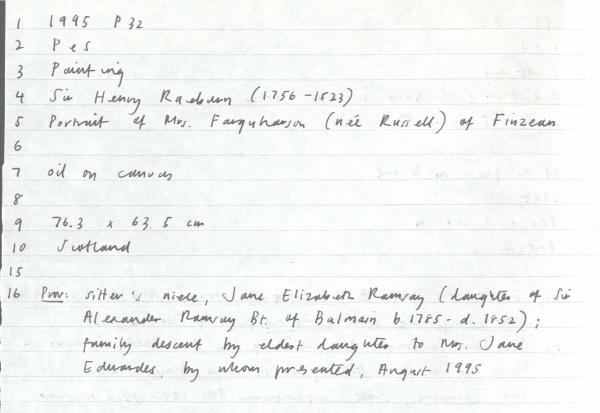 1 1995 P 32
2 P e s
3 Painting
4 Sir Henry Raeburn (1756-1823)
5 Portrait of Mrs. Farquharson (née Russell) of Finzean
6
7 oil on canvas
8
9 76.3 x 63.5 cm
10 Scotland
15
16 Prov: sitter's niece, Jane Elizabeth Ramsay (daughter of Sir
Alexander Ramsay Bt. of Balmain b.1785 - d.1852);
family descent by eldest daughter to Mrs. Jane
Edwardes, by whom presented, August 1995